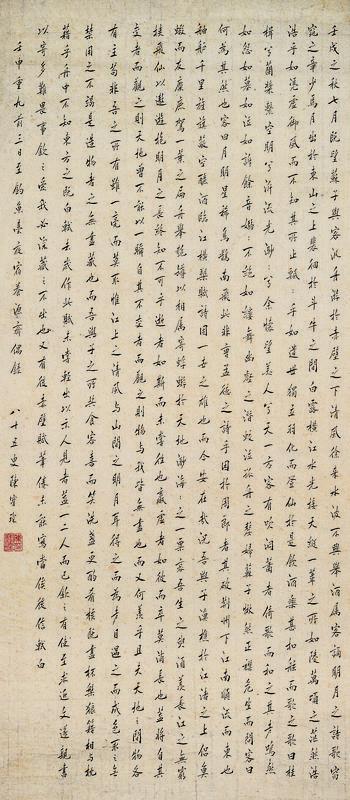 壬戌之秋七月既望蘇子與客汎舟游於赤壁之下清風徐來水波不興舉酒屬客誦明月之詩歌窈
窕之章少焉月出於東山之上裴徊於斗牛之間白露橫江水光接天縱一葦之所如陵萬頃之茫然浩
浩乎如憑虛御風而不知其所止飄飄乎如遺世獨立羽化而登仙於是飲酒樂甚扣舷而歌之歌曰桂
棹兮蘭槳擊空明兮泝流光渺渺兮余懷望美人兮天一方客有吹洞簫者倚歌而和之其聲嗚然
如怨如慕如泣如訴餘音嫋嫋不絕如縷舞幽壑之潛蛟泣孤舟之嫠婦蘇子愀然正襟危坐而問客曰
何為其然也客曰月明星稀烏鵲南飛此非曹孟德之詩乎困於周郎者其破荊州下江南順流而東也
舳艫千里旌旗蔽空釃酒臨江橫槊賦詩固一世之雄也而今安在哉況吾與子漁樵於江渚之上侶魚
蝦而友麋鹿駕一葉之扁舟舉匏樽以相屬寄蜉蝣於天地渺滄海之一粟哀吾生之須臾羨長江之無窮
挾飛仙以遨遊抱明月之長終知不可乎逝者如斯而未嘗往也贏虛者如彼而卒莫消長也蓋將自其
變者而觀之則天地曾不能以一瞬自其不變者而觀之則物與我皆無盡也而又何羨乎且夫天地之間物各
有主苟非吾之所有雖一毫而莫取惟江上之清風與山間之明月耳得之而為聲目遇之而成色取之無
禁用之不竭是造物者之無盡藏也而吾與子之所共食客喜而笑洗盞更酌肴核既盡杯槃狼籍相與枕
藉乎舟中不知東方之既白軾去歲作此賦未嘗輕出以示人見者蓋一二人而已欽之有使至求近文遂親書
以寄多難畏事欽之愛我必深藏之不出也又有後赤壁賦筆倦未能寫當俟後信軾白
壬申重九前三日至釣魚臺夜宿養源齋偶錄 八十五叟陳寶琛